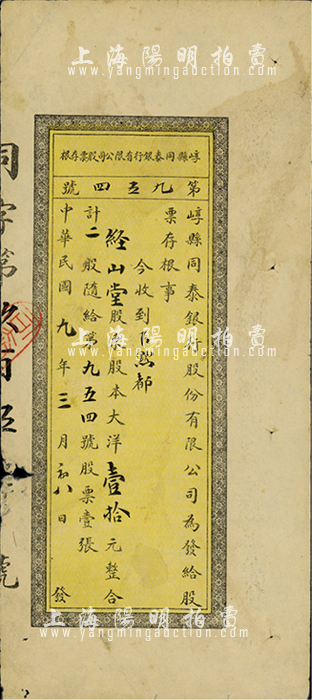 上海陽明拍賣
www.yangmingauction.com
崞縣同泰銀行有限公司股票存根
第九五四號
崞縣同泰銀行股份有限公司為發給股
票存根事
今收到官熱都
經山堂股東股本大洋壹拾元整合
計二股隨給第九五四號股票壹張
中華民國九年三月初八日發
同字第玖百伍 號
上海陽明拍賣
www.yangmingauction.com
上海陽明拍賣
www.yangmingauction.com